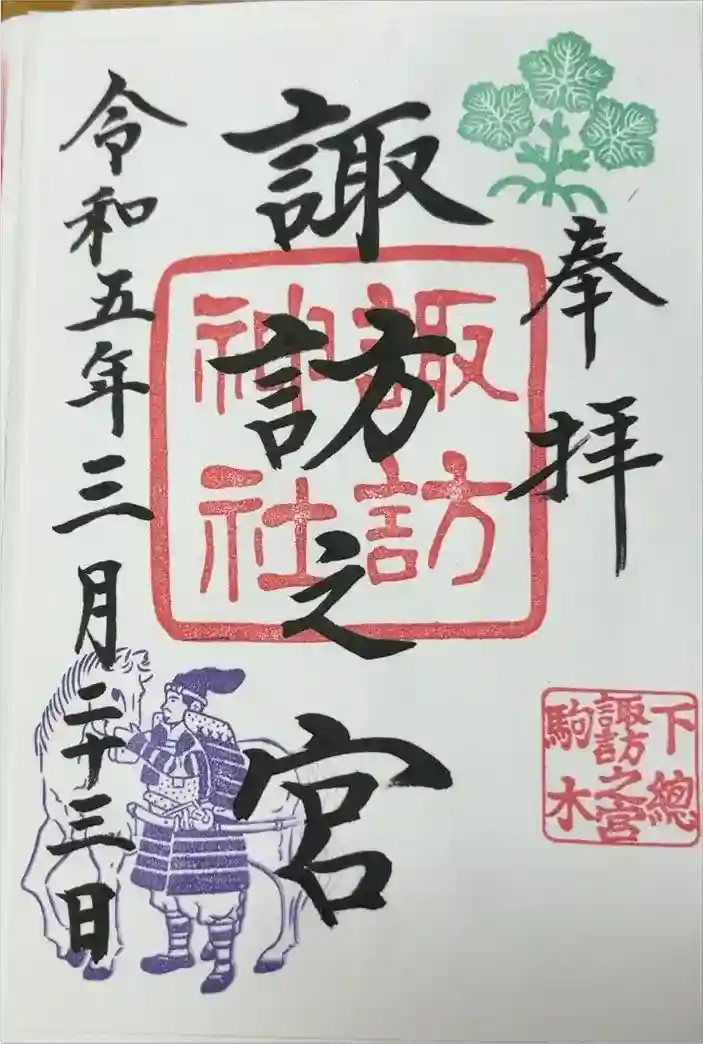 奉拝
下總
諏訪之宮
駒木
諏訪之宮
諏訪
神社
令和五年三月二十三日